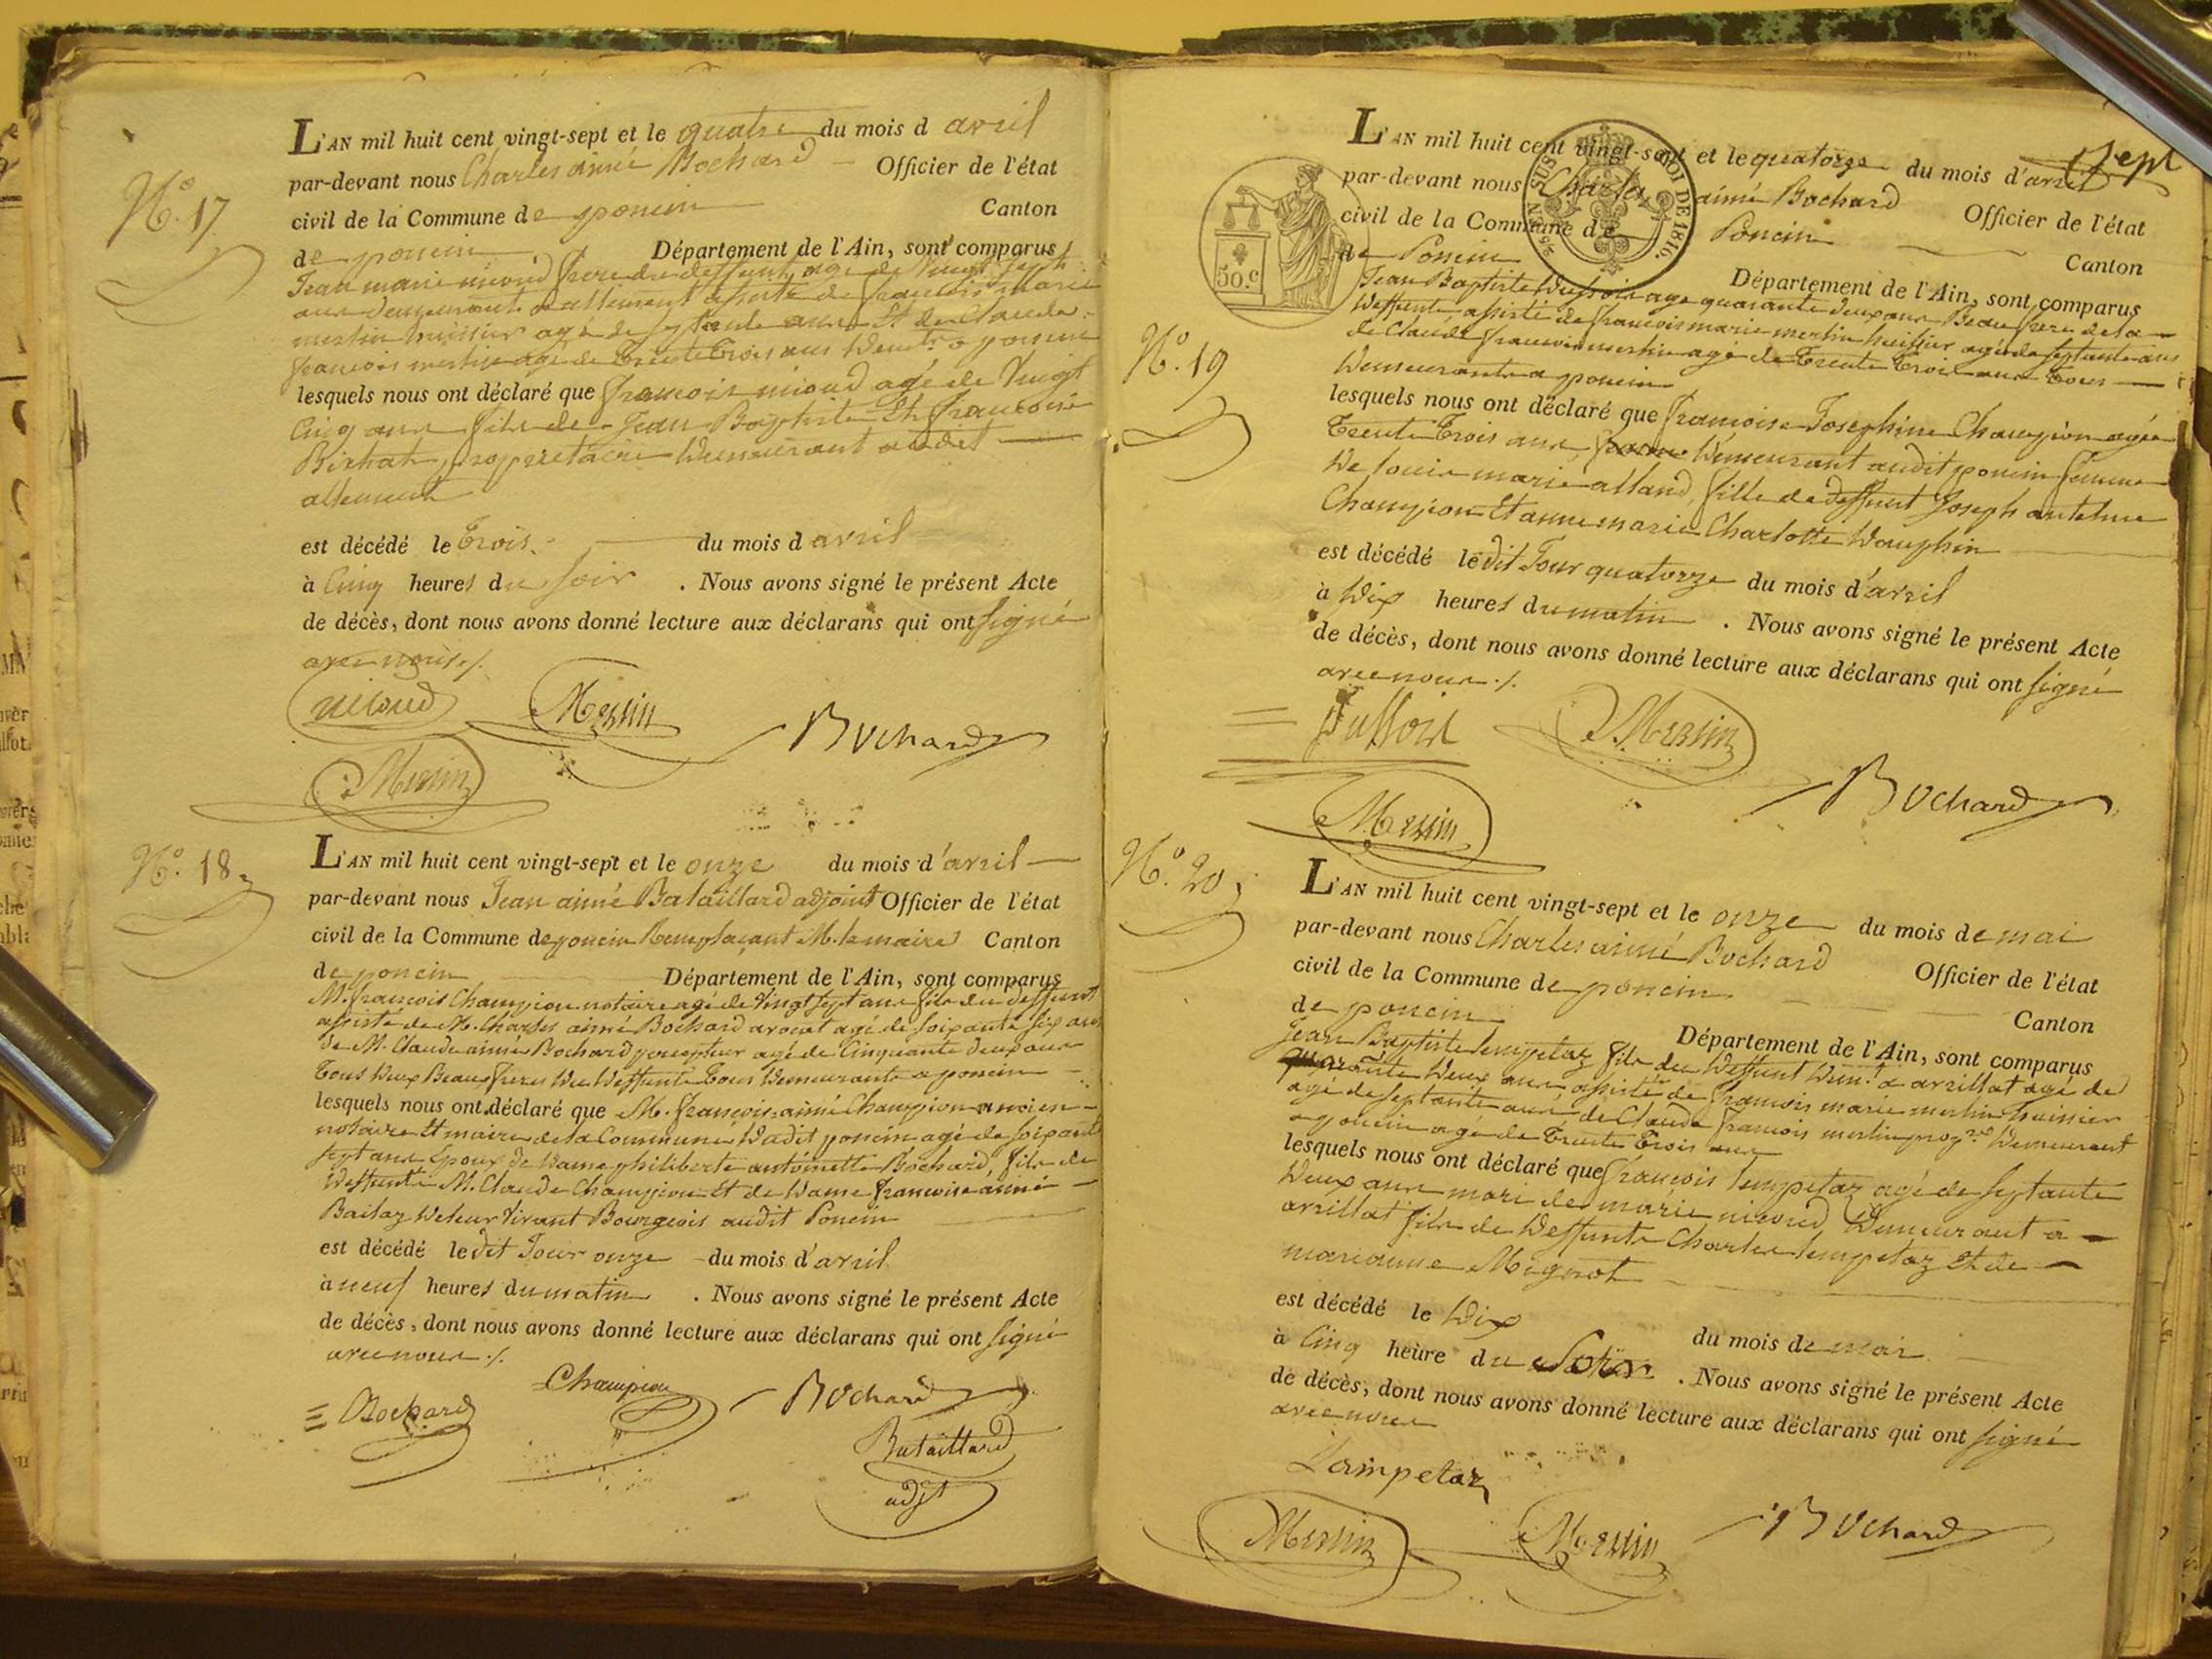 N.º 17
L'AN mil huit cent vingt-sept et le quatre du mois d avril
par-devant nous Charles aimé Bochard Officier de l'état
civil de la Commune de poncin Canton
de poncin Département de l'Ain, sont comparus
Jean marie nicoud frere du deffunt agé de Vingt Sept
ans demeurant a allement assisté de francois marie
merlin huissier agé de septante ans Et de Claude
francois merlin agé de Trente Trois ans Demts a poncin
lesquels nous ont déclaré que francois nicoud agé de Vingt
Cinq ans fils de Jean Baptiste Et francoise
Bichat, proprietaire Demeurant audit
allement
est décédé le Trois du mois d avril
à Cinq heures du soir . Nous avons signé le présent Acte
de décès, dont nous avons donné lecture aux déclarans qui ont signé
avec nous ./.
nicoud Merlin Bochard
Merlin
N.º 18
L'AN mil huit cent vingt-sept et le onze du mois d'avril
par-devant nous Jean aimé Bataillard adjoint Officier de l'état
civil de la Commune de poncin Remplaçant M. le maire Canton
de poncin Département de l'Ain, sont comparus
M. francois Champion notaire agé de Vingt Sept ans fils du deffunt
assisté de M. Charles aimé Bochard avocat agé de soixante six ans
de M. Claude aimé Bochard percepteur agé de Cinquante deux ans
Tous Deux Beaufreres Du Deffunt Tous Demeurants a poncin
lesquels nous ont déclaré que M. francois aimé Champion ancien
notaire Et maire de la Commune Dudit poncin agé de soixante
sept ans Epoux de Dame philiberte antoinette Bochard, fils de
Deffunt M. Claude Champion Et de Dame francoise aimé
Bailaz De leur Vivant Bourgeois audit Poncin
est décédé le dit Jour onze du mois d'avril
à neuf heures du matin . Nous avons signé le présent Acte
de décès, dont nous avons donné lecture aux déclarans qui ont signé
avec nous ./.
Bochard Champion Bochard
Bataillard
adjt
Sept
ROI DE
1816
50.C
N.º 19
L'AN mil huit cent vingt-sept et le quatorze du mois d'avril
par-devant nous Charles aimé Bochard Officier de l'état
civil de la Commune de Poncin Canton
de Poncin Département de l'Ain, sont comparus
Jean Baptiste Dussoir age quarante deux ans Beau frere de la
Deffunte, assisté de francois marie merlin huissier agé de septante ans
de Claude francois merlin agé de Trente Trois ans Tous
Demeurants a poncin
lesquels nous ont déclaré que francoise Josephine Champion agée
Trente Trois ans, Demeurant audit poncin femme
De louis marie alland, fille de deffunt Joseph antelme
Champion Et anne marie Charlotte Dauphin
est décédé le dit Jour quatorze du mois d'avril
à Dix heures du matin . Nous avons signé le présent Acte
de décès, dont nous avons donné lecture aux déclarans qui ont signé
avec nous ./.
Dussoir Merlin
Bochard
Merlin
N.º 20
L'AN mil huit cent vingt-sept et le onze du mois de mai
par-devant nous Charles aimé Bochard Officier de l'état
civil de la Commune de poncin Canton
de poncin Département de l'Ain, sont comparus
Jean Baptiste lempetaz fils du Deffunt Dem.t a avrillat agé de
quarante Deux ans assisté de francois marie merlin huissier
agé de septante ans de Claude francois merlin prop.re Demeurant
a poncin agé de Trente Trois ans
lesquels nous ont déclaré que francois lempetaz agé de septante
Deux ans mari de marie nicoud Demeurant a
avrillat fils de Deffunts Charles lempetaz Et de
marianne Mignot
est décédé le Dix du mois de mai
à Cinq heure du Soir . Nous avons signé le présent Acte
de décès, dont nous avons donné lecture aux déclarans qui ont signé
avec nous
Lempetaz
Merlin Merlin Bochard